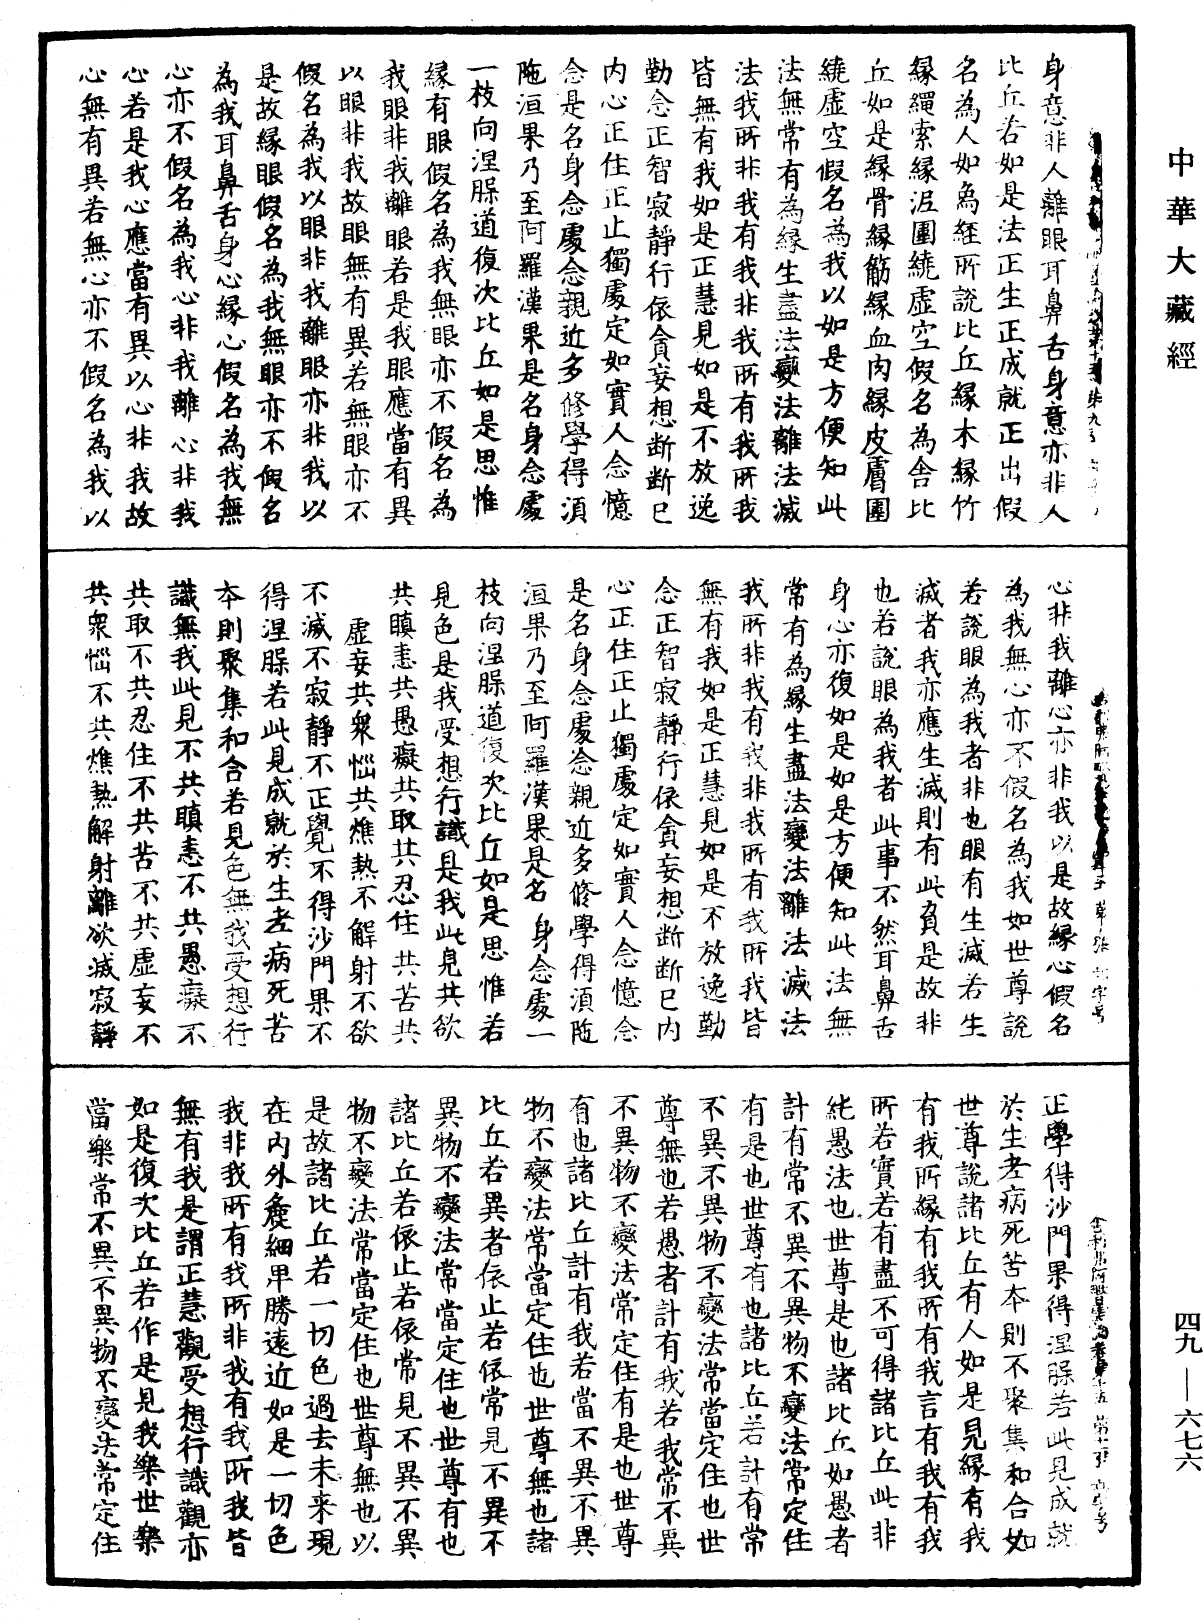 中華大藏經
身意非人離眼耳鼻舌身意亦非人
比丘若如是法正生正成就正出假
名為人如為經所說比丘緣木緣竹
緣繩索緣泥圍繞虛空假名為舍比
丘如是緣骨緣筋緣血肉緣皮膚圍
繞虛空假名為我以如是方便知此
法無常有為緣生盡法變法離法滅
法我所非我有我非我所有我所我
皆無有我如是正慧見如是不放逸
勤念正智寂靜行依貪妄想斷斷已
內心正住正止獨處定如實人念憶
念是名身念處念親近多修學得須
陁洹果乃至阿羅漢果是名身念處
一枝向涅槃道復次比丘如是思惟
緣有眼假名為我無眼亦不假名為
我眼非我離眼若是我眼應當有異
以眼非我故眼無有異若無眼亦不
假名為我以眼非我離眼亦非我以
是故緣眼假名為我無眼亦不假名
為我耳鼻舌身心緣心假名為我無
心亦不假名為我心非我離心非我
心若是我心應當有異以心非我故
心無有異若無心亦不假名為我以
心非我離心亦非我以是故緣心假名
為我無心亦不假名為我如世尊說
若說眼為我者非也眼有生滅若生
滅者我亦應生滅則有此負是故非
也若說眼為我者此事不然耳鼻舌
身心亦復如是如是方便知此法無
常有為緣生盡法變法離法滅法
我所非我有我非我所有我所我皆
無有我如是正慧見如是不放逸勤
念正智寂靜行依貪妄想斷斷已內
心正住正止獨處定如實人念憶念
是名身念處念親近多修學得須陁
洹果乃至阿羅漢果是名身念處一
枝向涅槃道復次比丘如是思惟若
見色是我受想行識是我此見共欲
共瞋恚共愚癡共取共忍住共苦共
虛妄共眾惱共燋熱不解射不欲
不滅不寂靜不正覺不得沙門果不
得涅槃若此見成就於生老病死苦
本則聚集和合若見色無我受想行
識無我此見不共瞋恚不共愚癡不
共取不共忍住不共苦不共虛妄不
共眾惱不共燋熱解射離欲滅寂靜
正學得沙門果得涅槃若此見成就
於生老病死苦本則不聚集和合如
世尊說諸比丘有人如是見緣有我
有我所緣有我所有我言有我有我
所若實若有盡不可得諸比丘此非
純愚法也世尊是也諸比丘如愚者
計有常不異不異物不變法常定住
有是也世尊有也諸比丘若計有常
不異不異物不變法常當定住也世
尊無也若愚者計有我若我常不異
不異物不變法常定住有是也世尊
有也諸比丘計有我若當不異不異
物不變法常當定住也世尊無也諸
比丘若異者依止若依常見不異不
異物不變法常當定住也世尊有也
諸比丘若依止若依常見不異不異
物不變法常當定住也世尊無也以
是故諸比丘若一切色過去未來現
在內外麁細卑勝遠近如是一切色
我非我所有我所非我有我所我皆
無有我是謂正慧觀受想行識觀亦
如是復次比丘若作是見我樂世樂
當樂常不異不異物不變法常定住
四九—六七六